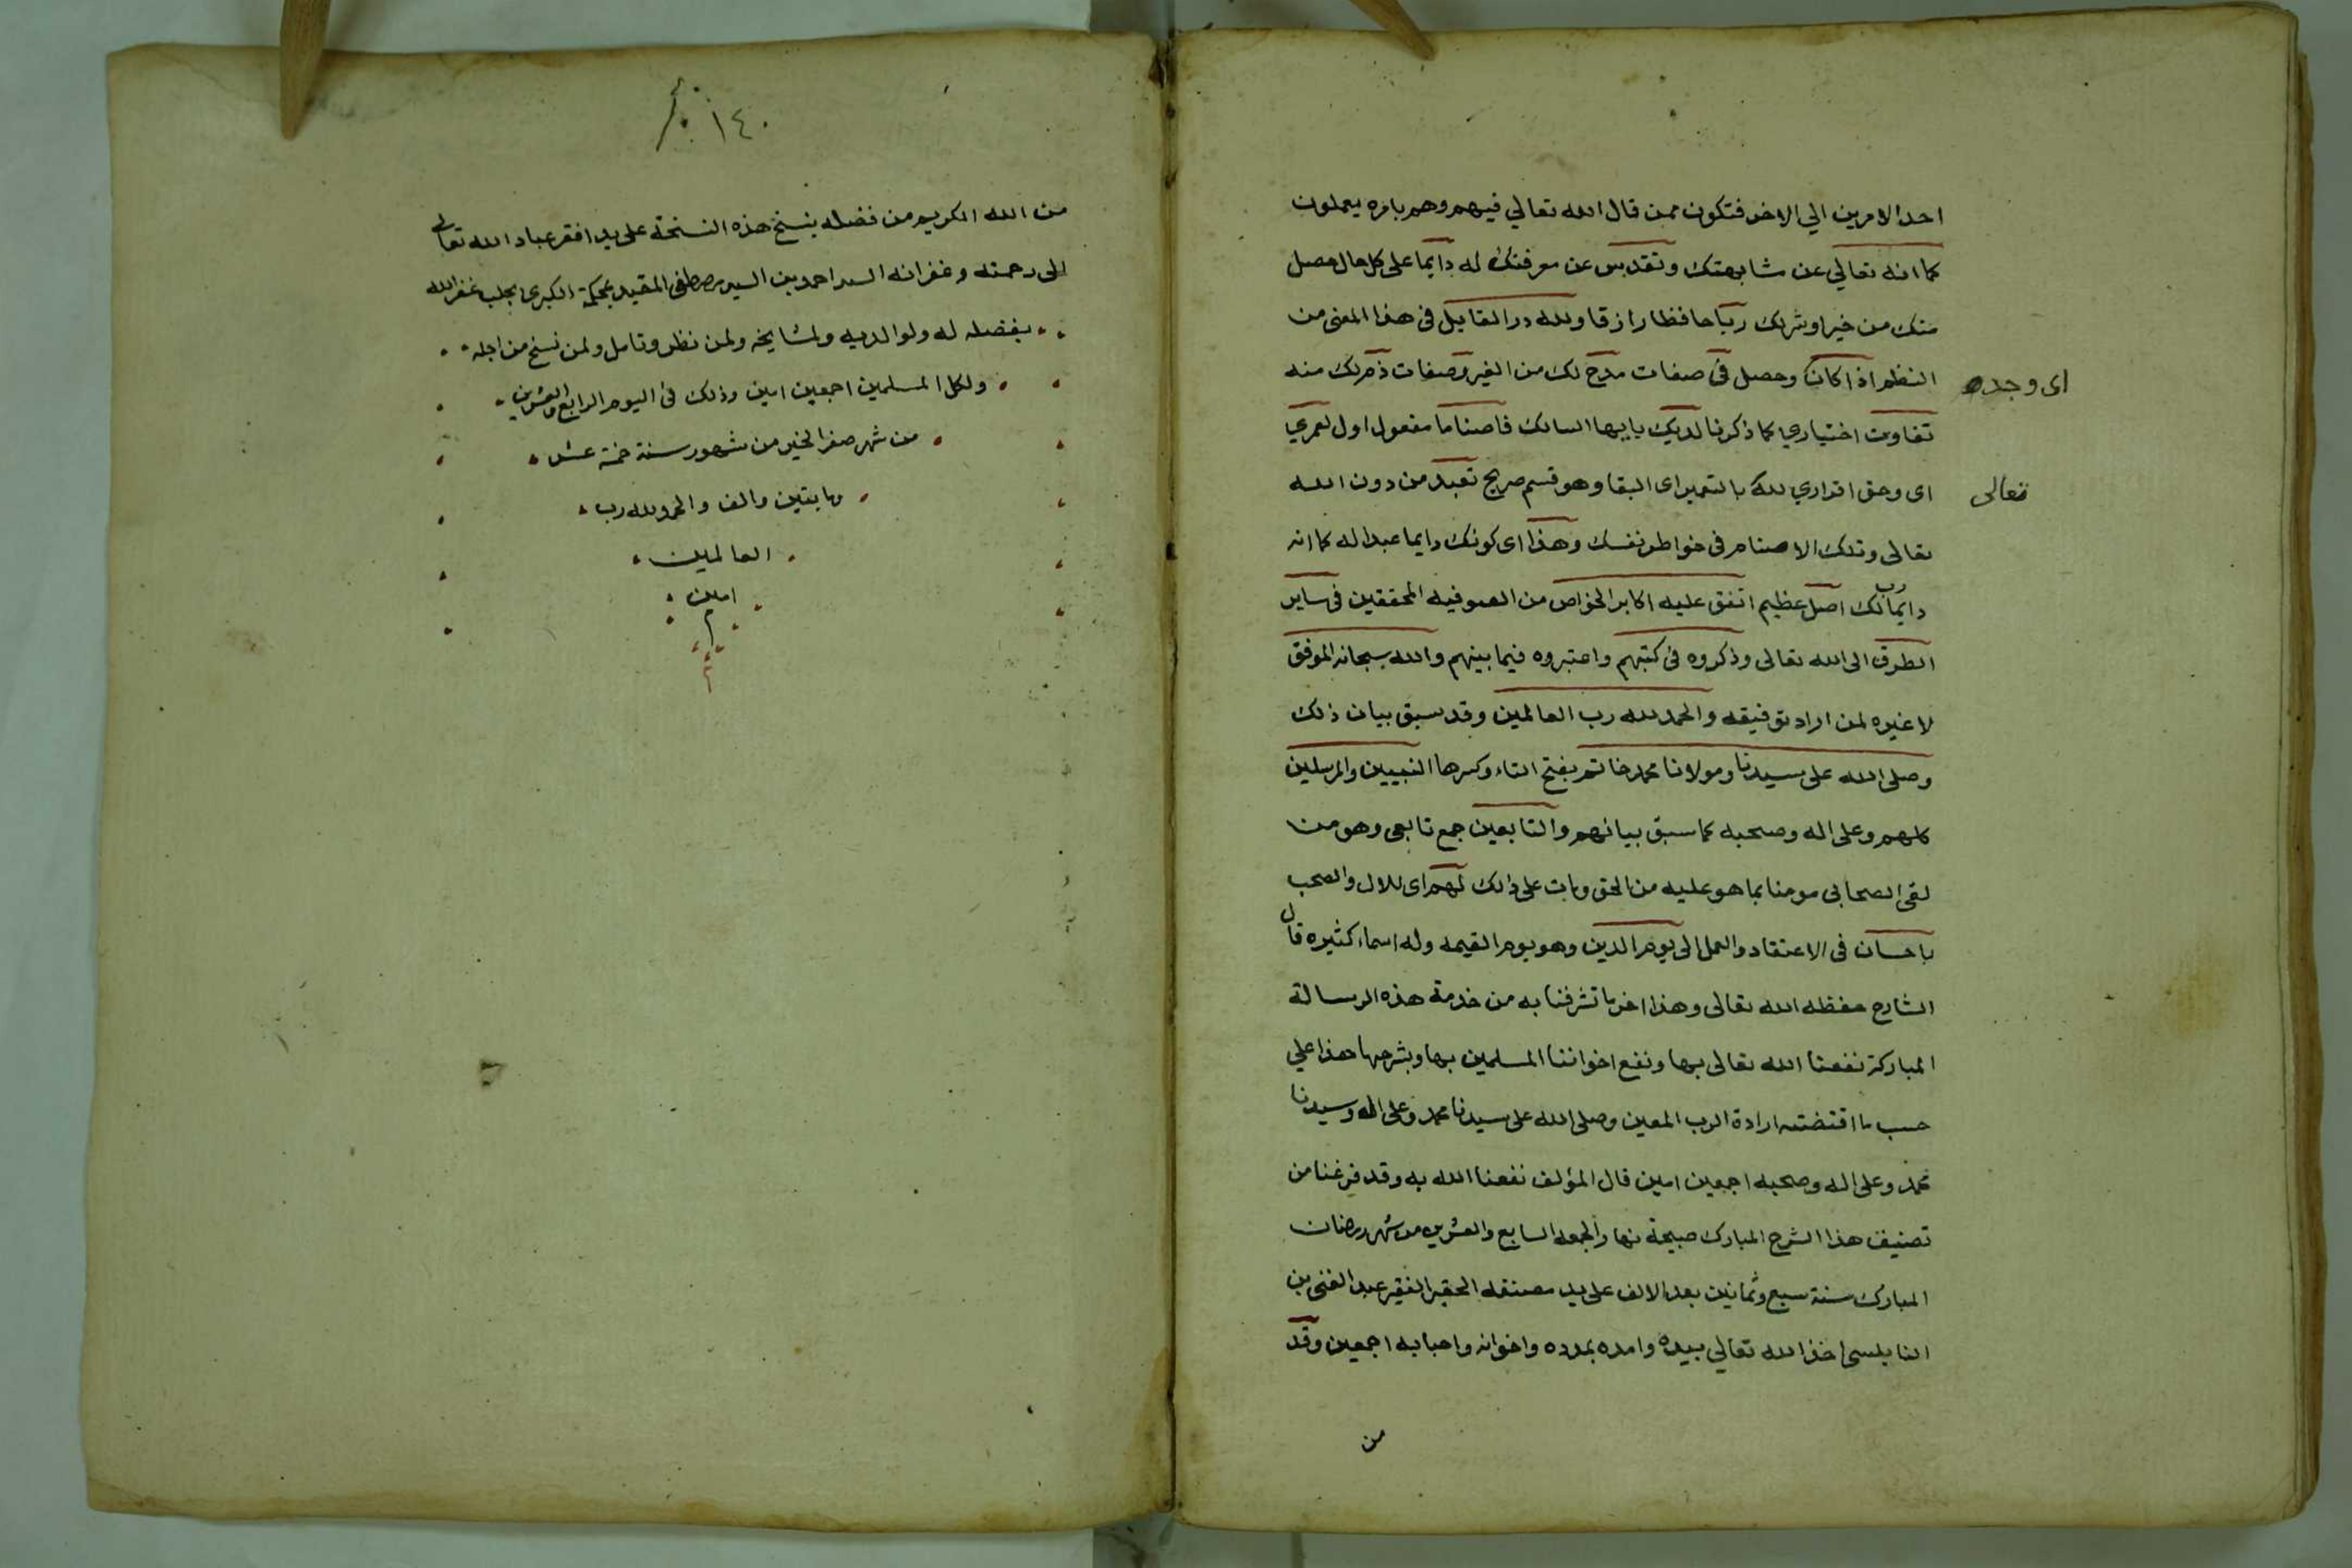 احد الامرين الي الاخر فتكون ممن قال الله تعالي فيهم وهم بامره يعملون
كما انه تعالي عن مشابهتك وتقدس عن معرفتك له دايما على كل حال حصل
منك من خير او شر لك ربا حافظا رازقا ولله در القايل في هذا المعنى من
النظم اذا كان وحصل في صفات مدح لك من الغير وصفات ذم لك منه
اى وجده
تفاوت اختياري كما ذكرنا لديك يا ايها السالك فاصناما مفعول اول لعمري
اى وحق اقراري لله بالتعمير اى البقا وهو قسم صريح تعبد من دون الله
تعالى
تعالى وتلك الاصنام في خواطر نفسك وهذا اى كونك دايما عبدا له كما انه
دايما رب لك اصل عظيم اتفق عليه اكابر الخواص من الصوفيه المحققين في ساير
الطرق الى الله تعالى وذكروه في كتبهم واعتبروه فيما بينهم والله سبحانه الموفق
لا غيره لمن اراد توفيقه والحمد لله رب العالمين وقد سبق بيان ذلك
وصلى الله على سيدنا ومولانا محمد خاتم بفتح التاء وكسرها النبيين والمرسلين
كلهم وعلى اله وصحبه كما سبق بيانهم والتابعين جمع تابعى وهو من
لقى الصحابى مومنا بما هو عليه من الحق ومات على ذالك لهم اى للال والصحب
باحسان في الاعتقاد والعمل الى يوم الدين وهو يوم القيمه وله اسماء كثيره قال
الشارح حفظه الله تعالى وهذا اخر ما تشرفنا به من خدمة هذه الرسالة
المباركة نفعنا الله تعالى بها ونفع اخواننا المسلمين بها وبشرحها هذا علي
حسب ما اقتضته ارادة الرب المعين وصلى الله على سيدنا محمد وعلى اله وسيدنا
محمد وعلى اله وصحبه اجمعين امين قال المؤلف نفعنا الله به وقد فرغنا من
تصنيف هذا الشرح المبارك صبيحة نهار الجمعه السابع والعشرين من شهر رمضان
المبارك سنة سبع وثمانين بعد الالف على يد مصنفه الحقير الفقير عبد الغنى بن
النابلسى اخذ الله تعالي بيده وامده بمدده واخوانه واحبابه اجمعين وقد
من
١٤٠
من الله الكريم من فضله بنسخ هذه النسخة على يد افقر عباد الله تعالى
الى رحمته وغفرانه السيد احمد بن السيد مصطفى المقيد بمحكمة الكبرى بحلب غفر الله
بفضله له ولوالديه ولمشايخه ولمن نظر وتامل ولمن نسخ من اجله
ولكل المسلمين اجمعين امين وذلك في اليوم الرابع والعشرين
من شهر صفر الخير من شهور سنة خمسة عشر
ومايتين والف والحمد لله رب
العالمين
امين
م